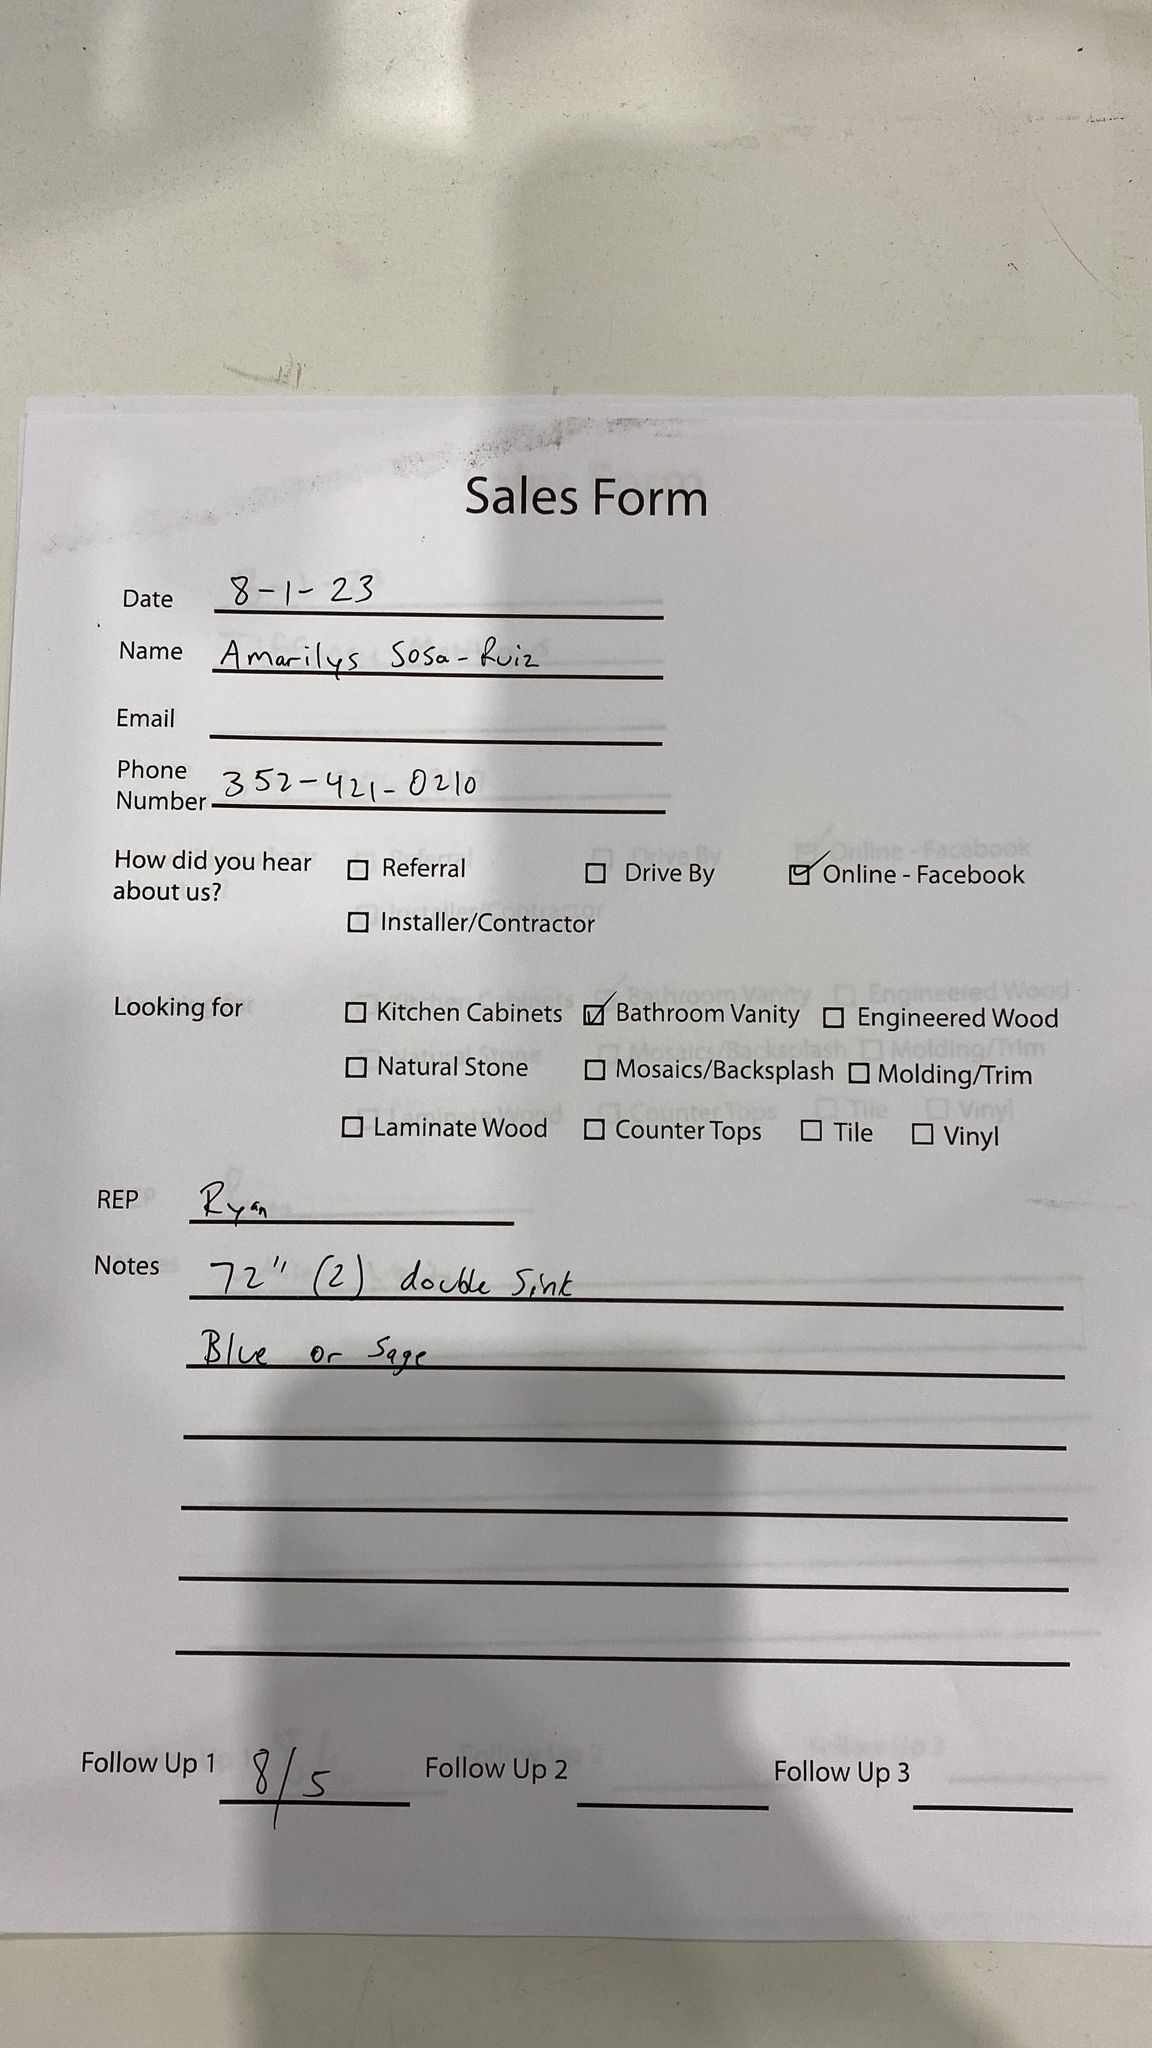 Sales Form
Date 8-1-23
Name Amarilys Sosa-Ruiz
Email
Phone Number 352-421-0210
How did you hear about us? ☐ Referral ☐ Drive By ☑ Online - Facebook
☐ Installer/Contractor
Looking for ☐ Kitchen Cabinets ☑ Bathroom Vanity ☐ Engineered Wood
☐ Natural Stone ☐ Mosaics/Backsplash ☐ Molding/Trim
☐ Laminate Wood ☐ Counter Tops ☐ Tile ☐ Vinyl
REP Ryan
Notes 72" (2) double Sink
Blue or Sage
Follow Up 1 8/5 Follow Up 2 Follow Up 3